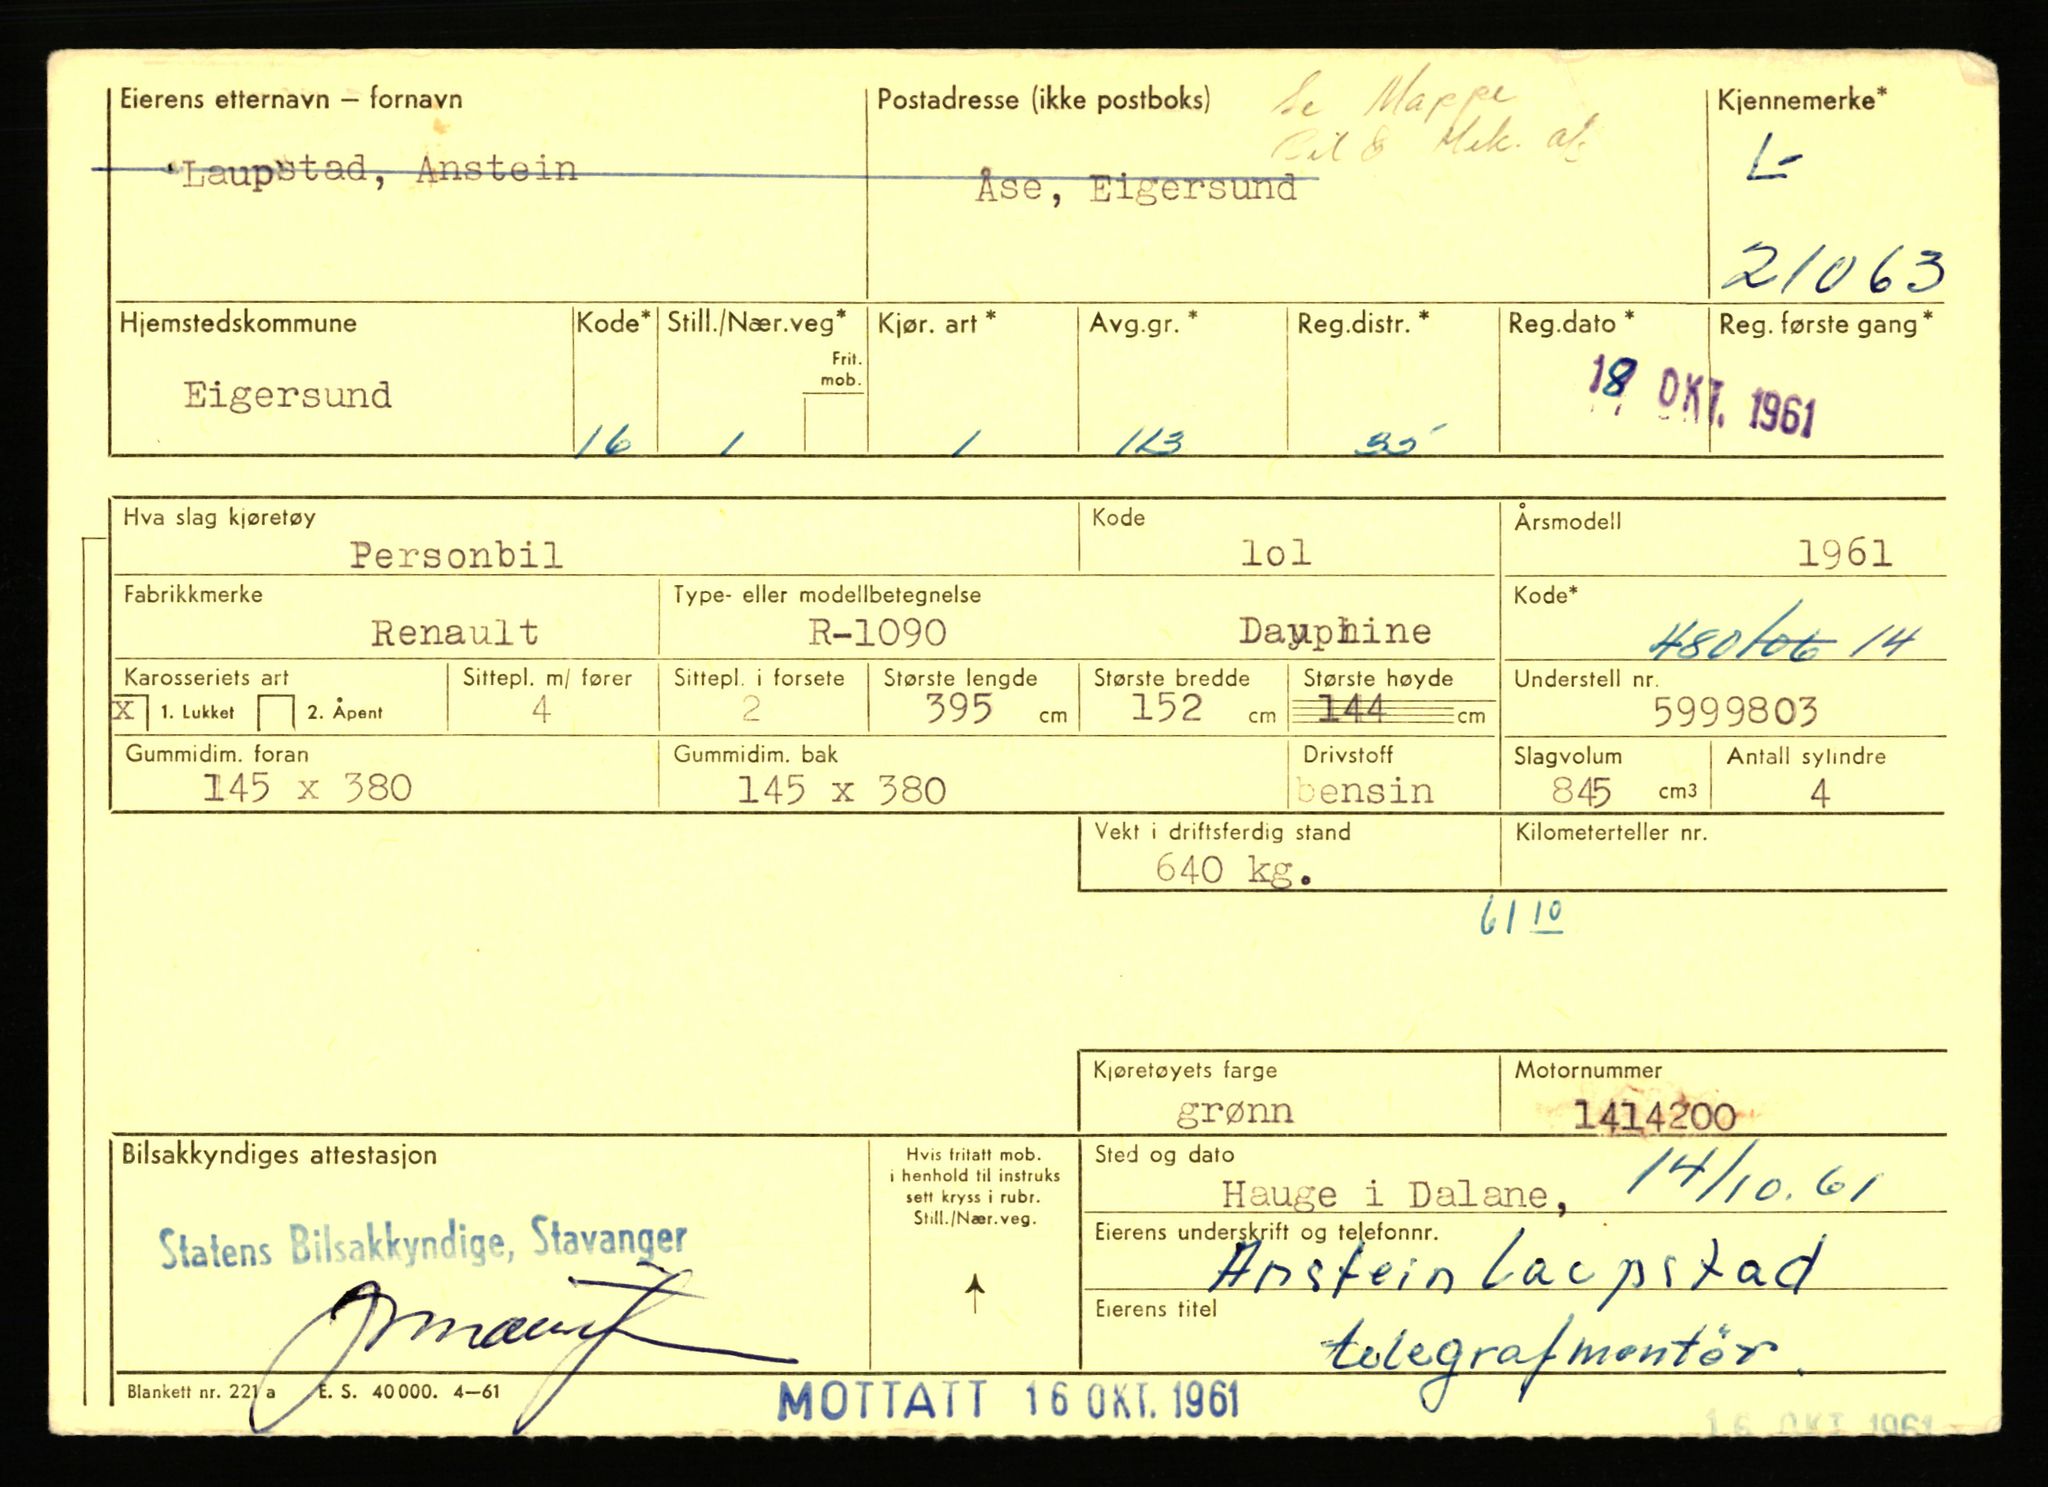 Eierens etternavn – fornavn
Laupstad, Anstein
Postadresse (ikke postboks)
Se Mappe
Bil & Mek. a/s
Åse, Eigersund
Kjennemerke*
L-
21063
Hjemstedskommune
Eigersund
Kode*
16
Still./Nær.veg*
Frit.
mob.
1
Kjør. art *
1
Avg.gr. *
113
Reg.distr. *
35
Reg.dato *
18 OKT. 1961
Reg. første gang*
Hva slag kjøretøy
Personbil
Kode
lol
Årsmodell
1961
Fabrikkmerke
Renault
Type- eller modellbetegnelse
R-1090 Dauphine
Kode*
480/06 14
Karosseriets art
X 1. Lukket 2. Åpent
Sittepl. m/ fører
4
Sittepl. i forsete
2
Største lengde
395 cm
Største bredde
152 cm
Største høyde
144 cm
Understell nr.
5999803
Gummidim. foran
145 x 380
Gummidim. bak
145 x 380
Drivstoff
bensin
Slagvolum
845 cm3
Antall sylindre
4
Vekt i driftsferdig stand
640 kg.
Kilometerteller nr.
61 10
Kjøretøyets farge
grønn
Motornummer
1414200
Bilsakkyndiges attestasjon
Statens Bilsakkyndige, Stavanger
Hvis fritatt mob.
i henhold til instruks
sett kryss i rubr.
Still./Nær.veg.
Sted og dato
Hauge i Dalane, 14/10. 61
Eierens underskrift og telefonnr.
Anstein Laupstad
Eierens titel
telegrafmontör.
Blankett nr. 221 a E. S. 40000. 4–61
MOTTATT 16 OKT. 1961
16 OKT. 1961